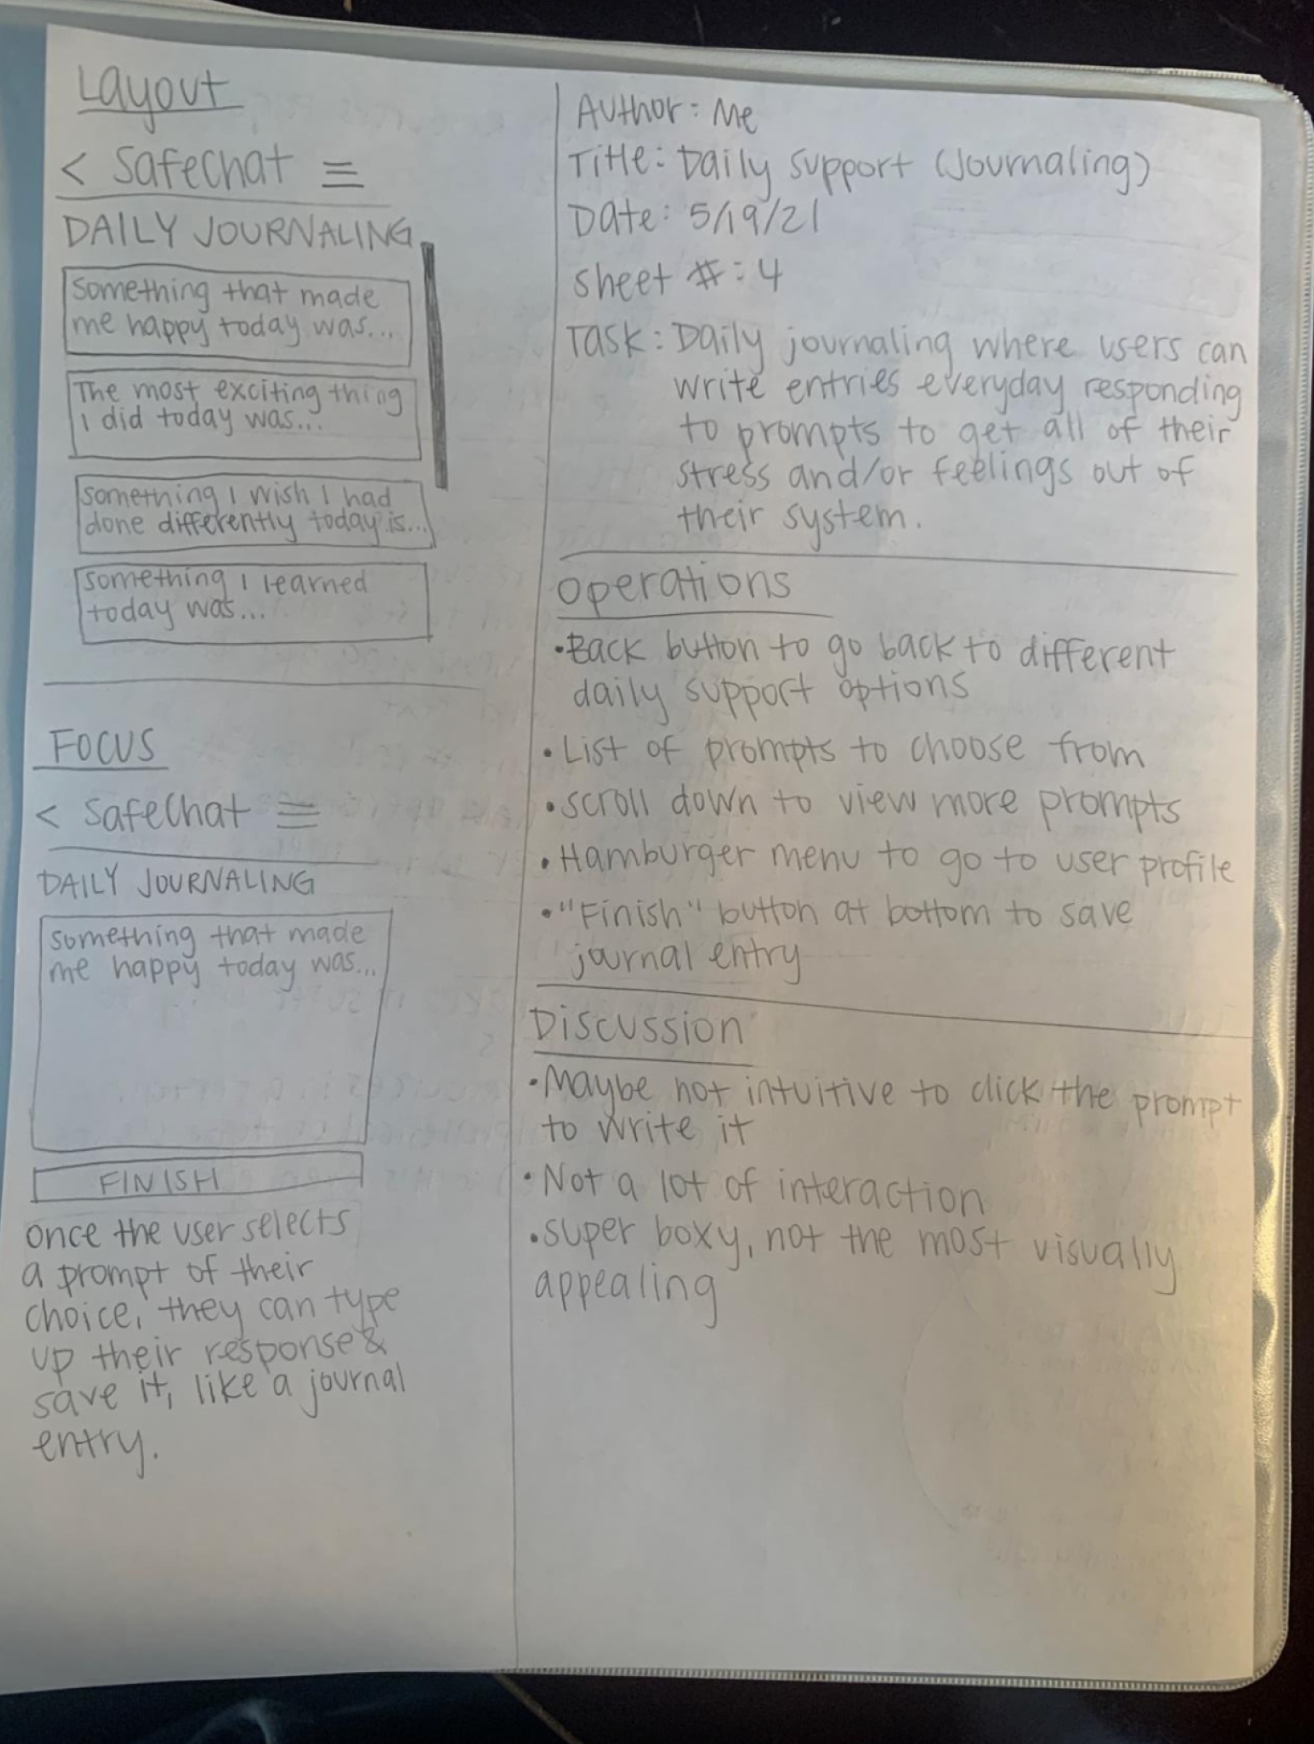 Layout
< Safechat ≡
DAILY JOURNALING
something that made
me happy today was...
The most exciting thing
I did today was...
something I wish I had
done differently today is...
something I learned
today was...
FOCUS
< Safechat ≡
DAILY JOURNALING
something that made
me happy today was...
FINISH
once the user selects
a prompt of their
choice, they can type
up their response &
save it, like a journal
entry.
Author: Me
Title: Daily support (Journaling)
Date: 5/19/21
sheet #: 4
Task: Daily journaling where users can
write entries everyday responding
to prompts to get all of their
stress and/or feelings out of
their system.
Operations
• Back button to go back to different
daily support options
• List of prompts to choose from
• scroll down to view more prompts
• Hamburger menu to go to user profile
• "Finish" button at bottom to save
journal entry
Discussion
• Maybe not intuitive to click the prompt
to write it
• Not a lot of interaction
• super boxy, not the most visually
appealing